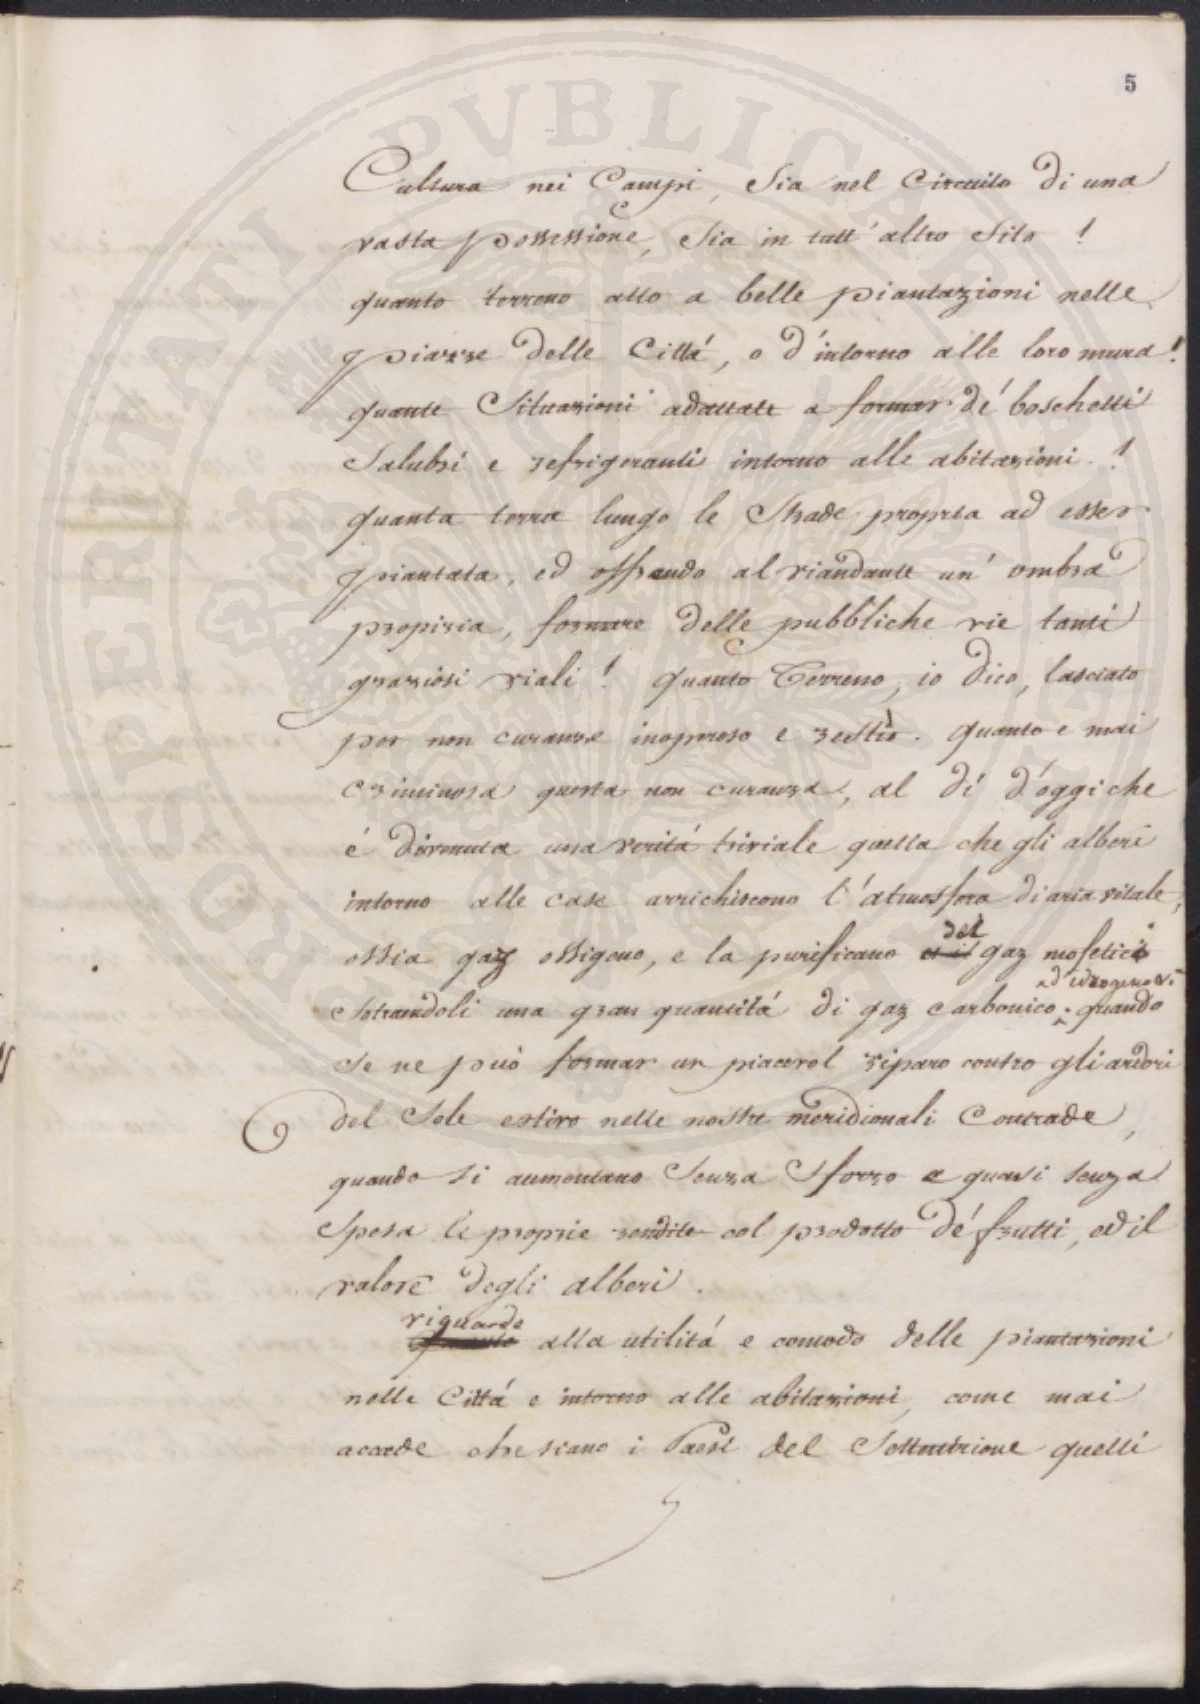 5
Cultura nei Campi, Sia nel Circuito di una
vasta possessione, Sia in tutt' altro Sito !
quanto terreno atto a belle piantazioni nelle
piazze delle Cittá, o d'intorno alle loro mura !
quante Situazioni adattate a formar dé boschetti
Salubri e refrigeranti intorno alle abitazioni !
quanta terra lungo le Strade propria ad esser
piantata, ed offrendo al viandante un' ombra
propizia, formare delle pubbliche vie tanti
graziosi viali ! quanto Terreno, io dico, lasciato
per non curanza inoperoso e restio. quanto e mai
criminosa questa non curanza, al dí d'oggi che
é divenuta una veritá triviale quella che gli alberi
intorno alle case arrichiscono l'atmosfera di aria vitale,
del
ossia gaz ossigeno, e la purificano et il gaz mofetici
ed idrogeno &
Sotraendoli una gran quantitá di gaz carbonico; quando
Se ne puó formar un piacevol riparo contro gli ardori
del Sole estivo nelle nostre meridionali Contrade,
quando Si aumentano Senza Sforzo e quasi senza
Spesa le proprie rendite col prodotto dé frutti, ed il
valore degli alberi.
riguardo
alla utilitá e comodo delle piantazioni
nelle Cittá e intorno alle abitazioni, come mai
accade che siano i Paesi del Settentrione quelli